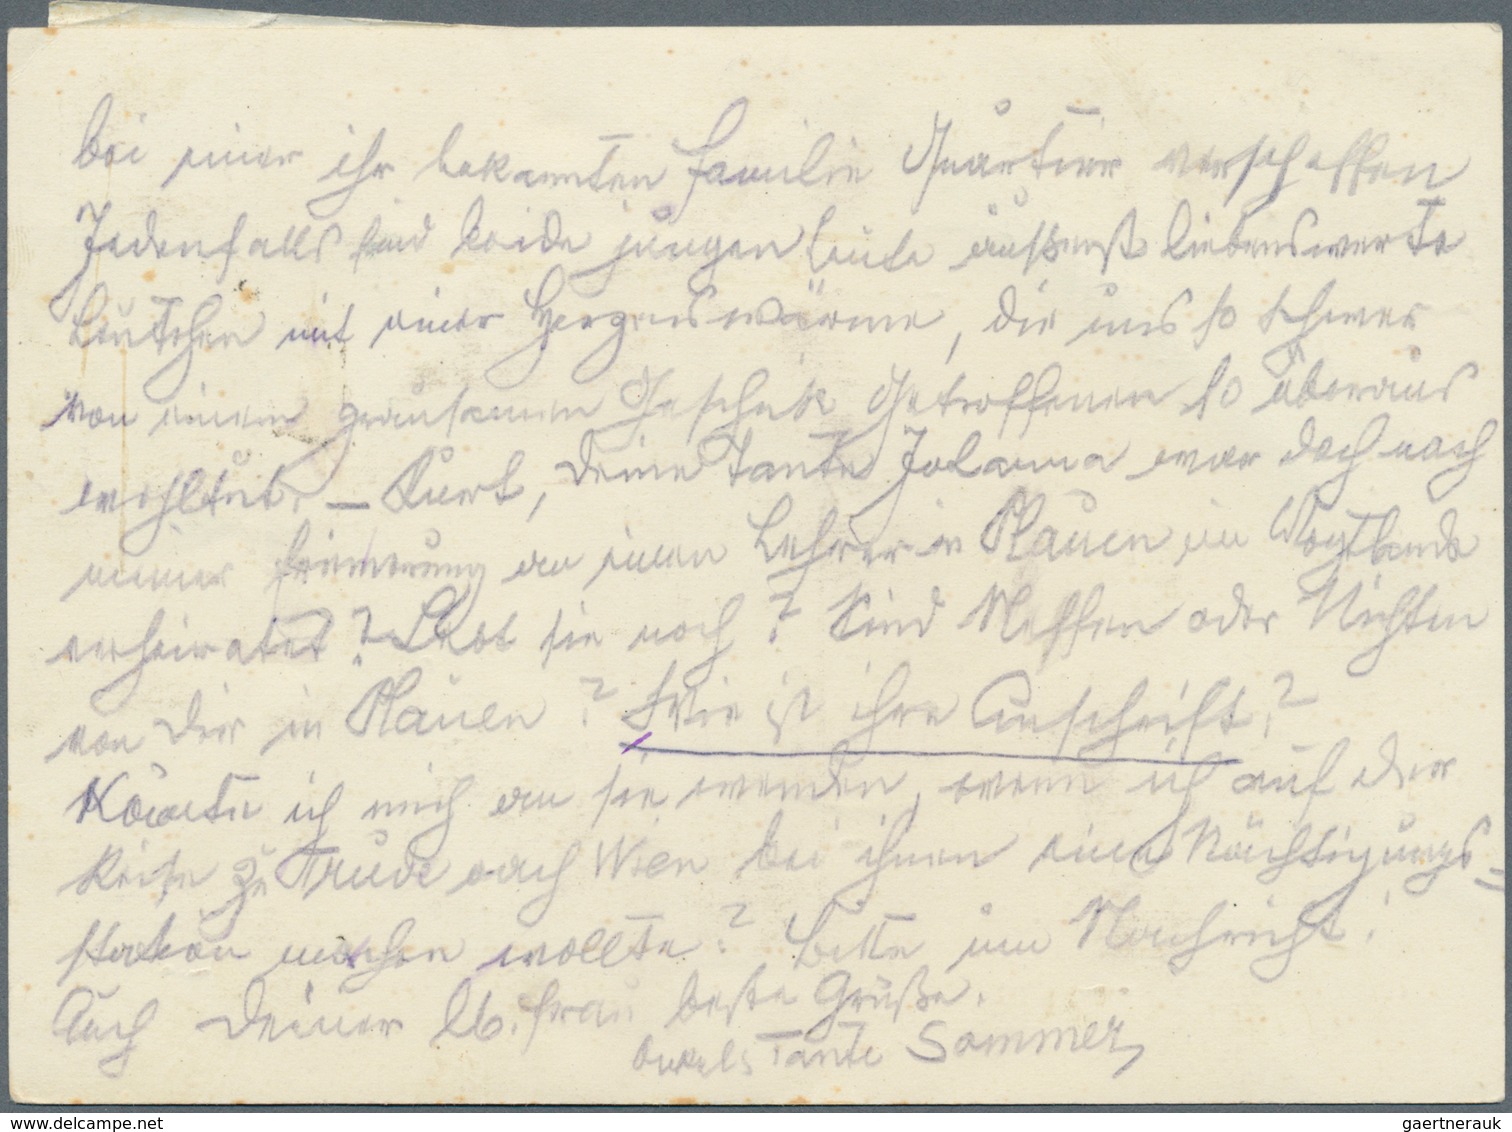 bei einer ihr bekannten Familie Quartier verschaffen
Jedenfalls sind beide jungen Leute äußerst liebenswerte
Leutchen mit einer Herzenswärme, die uns so schwer
von einem grausamen Geschick Getroffenen so überaus
wohltut. – Kurt, Deine Tante Johanna war doch nach
meiner Erinnerung an einen Lehrer in Plauen im Vogtlande
verheiratet? Lebt sie noch? Sind Neffen oder Nichten
von Dir in Plauen? Wie ist ihre Anschrift?
Könnte ich mich an sie wenden, wenn ich auf der
Reise zu Trude nach Wien bei ihnen eine Nächtigungs=
station machen wollte? Bitte um Nachricht!
Auch Deiner lb. Frau beste Grüße.
Tante Sommer,
gaertnerauk